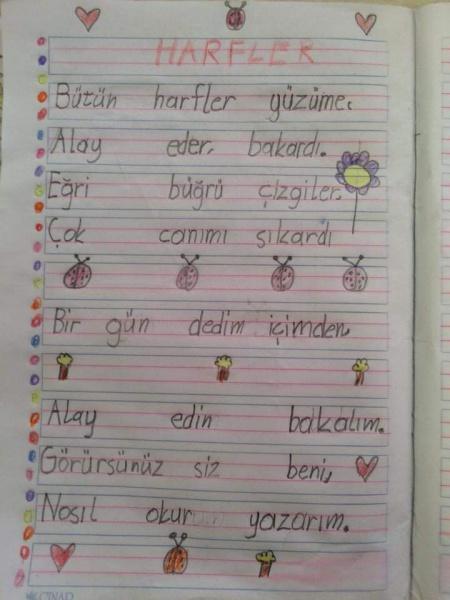 HARFLER
Bütün harfler yüzüme.
Alay eder, bakardı.
Eğri büğrü çizgiler.
Çok canımı sıkardı
Bir gün dedim içimden,
Alay edin bakalım.
Görürsünüz siz beni,
Nasıl okur yazarım.